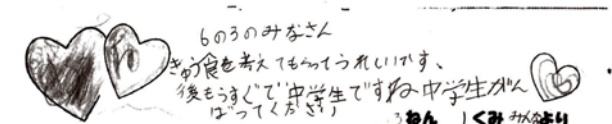 6の3のみなさん
きゅう食を考えてもらってうれしいです、
後もうすぐで中学生ですね中学生がん
ばってください
3ねん 1くみ みんなより